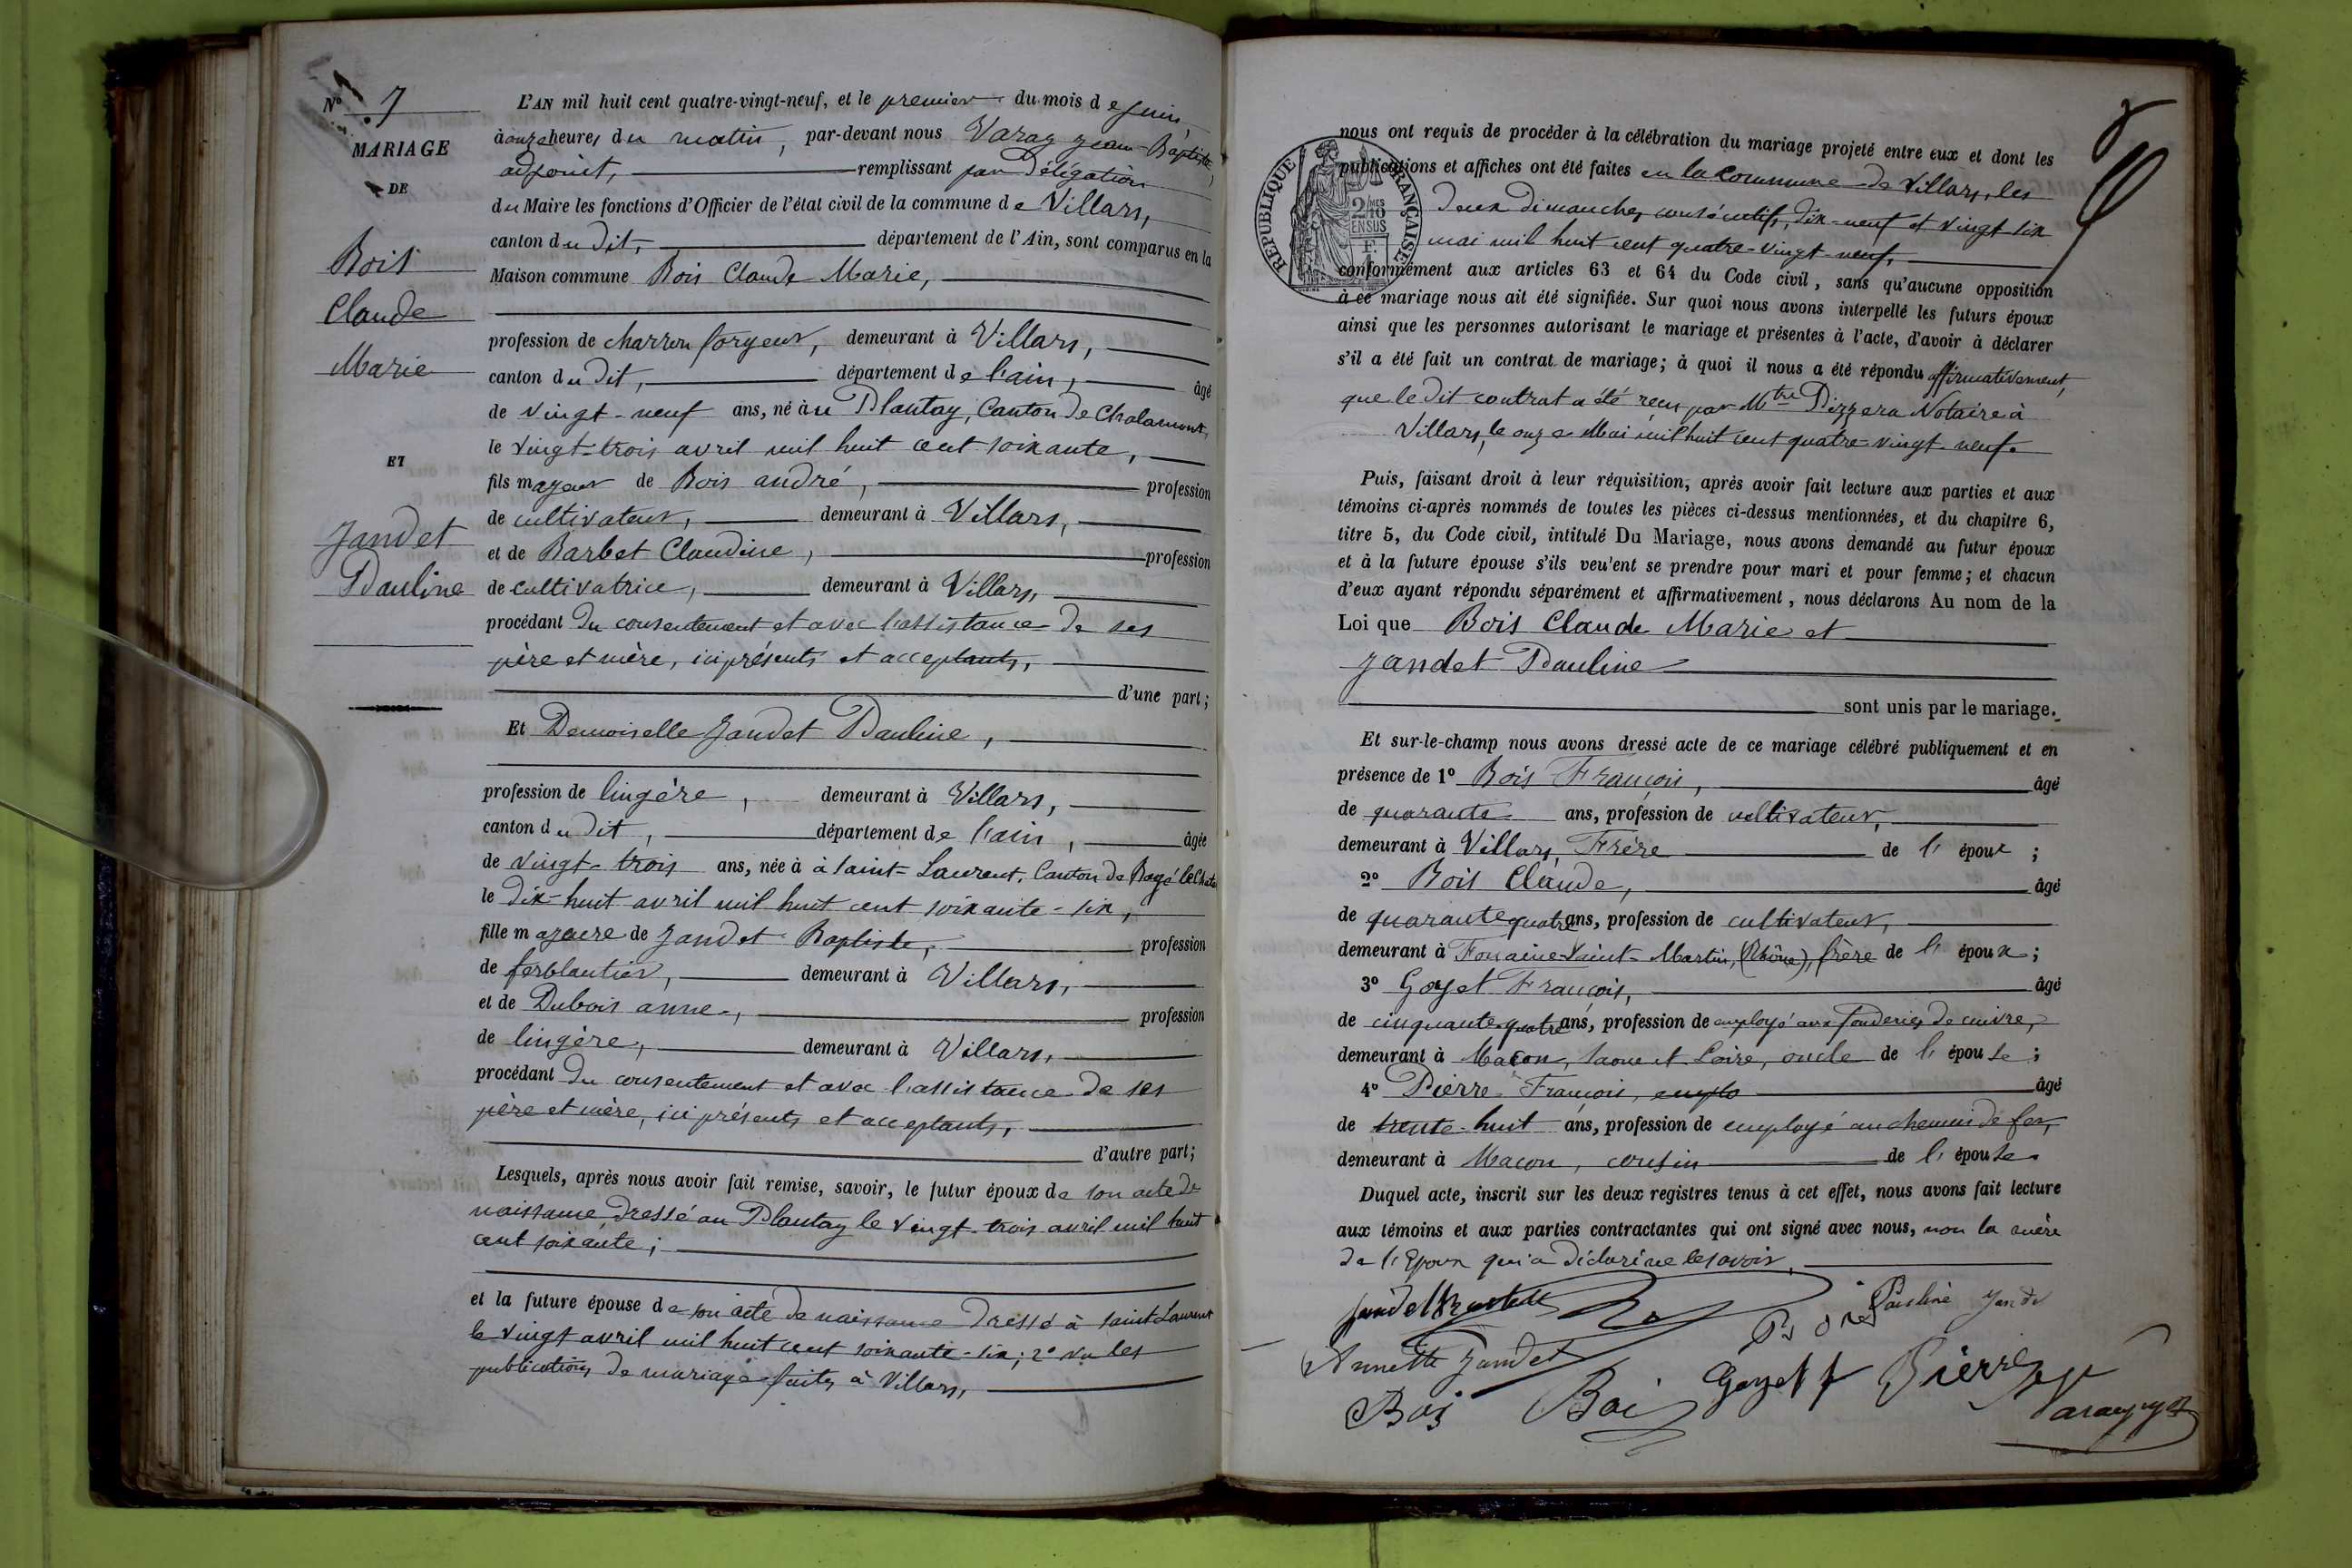 N° 7
MARIAGE
DE
Bois
Claude
Marie
ET
Jandet
Pauline
L'AN mil huit cent quatre-vingt-neuf, et le premier du mois de Juin,
à onze heures du matin, par-devant nous Varag Jean-Baptiste,
adjoint, remplissant par Délégation
du Maire les fonctions d'Officier de l'état civil de la commune de Villars,
canton du dit, département de l'Ain, sont comparus en la
Maison commune Bois Claude Marie,
profession de charron forgeur, demeurant à Villars,
canton du dit, département de l'ain, âgé
de vingt-neuf ans, né au Plantay, Canton de Chalamont,
le vingt-trois avril mil huit cent soixante,
fils majeur de Bois andré, profession
de cultivateur, demeurant à Villars,
et de Barbet Claudine, profession
de cultivatrice, demeurant à Villars,
procédant du consentement et avec l'assistance de ses
père et mère, ici présents et acceptants,
d'une part;
Et Demoiselle Jandet Pauline,
profession de lingère, demeurant à Villars,
canton du dit, département de l'ain, âgée
de vingt-trois ans, née à à saint-Laurent, Canton de Bagé le Chatel
le dix-huit avril mil huit cent soixante-six,
fille majeure de Jandet Baptiste, profession
de ferblantier, demeurant à Villars,
et de Dubois anne, profession
de lingère, demeurant à Villars,
procédant du consentement et avec l'assistance de ses
père et mère, ici présents et acceptants,
d'autre part;
Lesquels, après nous avoir fait remise, savoir, le futur époux de son acte de
naissance dressé au Plantay le vingt-trois avril mil huit
cent soixante;
et la future épouse de son acte de naissance dressé à saint Laurent
le vingt avril mil huit cent soixante-six; 2° vu les
publications de mariage faites à Villars,
RÉPUBLIQUE FRANÇAISE
2/10 MES
EN SUS
nous ont requis de procéder à la célébration du mariage projeté entre eux et dont les
publications et affiches ont été faites en la commune de Villars, les
deux dimanches consécutifs, dix-neuf et vingt six
mai mil huit cent quatre-vingt-neuf,
conformément aux articles 63 et 64 du Code civil, sans qu'aucune opposition
à ce mariage nous ait été signifiée. Sur quoi nous avons interpellé les futurs époux
ainsi que les personnes autorisant le mariage et présentes à l'acte, d'avoir à déclarer
s'il a été fait un contrat de mariage; à quoi il nous a été répondu affirmativement,
que le dit contrat a été reçu par Mtre Pizzera Notaire à
Villars, le onze Mai mil huit cent quatre-vingt-neuf.
Puis, faisant droit à leur réquisition, après avoir fait lecture aux parties et aux
témoins ci-après nommés de toutes les pièces ci-dessus mentionnées, et du chapitre 6,
titre 5, du Code civil, intitulé Du Mariage, nous avons demandé au futur époux
et à la future épouse s'ils veu'ent se prendre pour mari et pour femme; et chacun
d'eux ayant répondu séparément et affirmativement, nous déclarons Au nom de la
Loi que Bois Claude Marie et
Jandet Pauline
sont unis par le mariage.
Et sur-le-champ nous avons dressé acte de ce mariage célébré publiquement et en
présence de 1° Bois François, âgé
de quarante ans, profession de cultivateur,
demeurant à Villars, Frère de l' époux;
2° Bois Claude, âgé
de quarante quatre ans, profession de cultivateur,
demeurant à Fontaine-Saint-Martin, (Rhône), frère de l' époux;
3° Goyet François, âgé
de cinquante-quatre ans, profession de employé aux fonderies de cuivre,
demeurant à Macon, saone et Loire, oncle de l' épouse;
4° Pierre François, emplo âgé
de trente-huit ans, profession de employé au chemin de fer,
demeurant à Macon, cousin de l' épouse
Duquel acte, inscrit sur les deux registres tenus à cet effet, nous avons fait lecture
aux témoins et aux parties contractantes qui ont signé avec nous, non la mère
de l'Epoux qui a déclaré ne le savoir.
Pauline Jandet
Annette Jandet
Bois Boi Goyet f Pierre